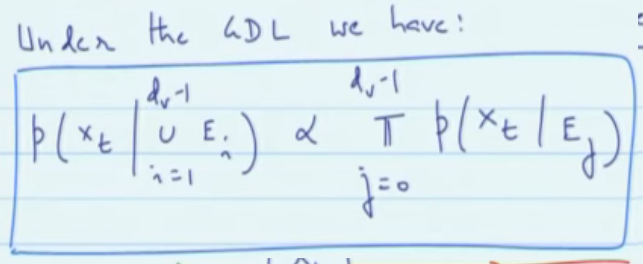 Under the GDL we have:
p(x_t | ∪_{i=1}^{d_v-1} E_i) ∝ ∏_{j=0}^{d_v-1} p(x_t | E_j)